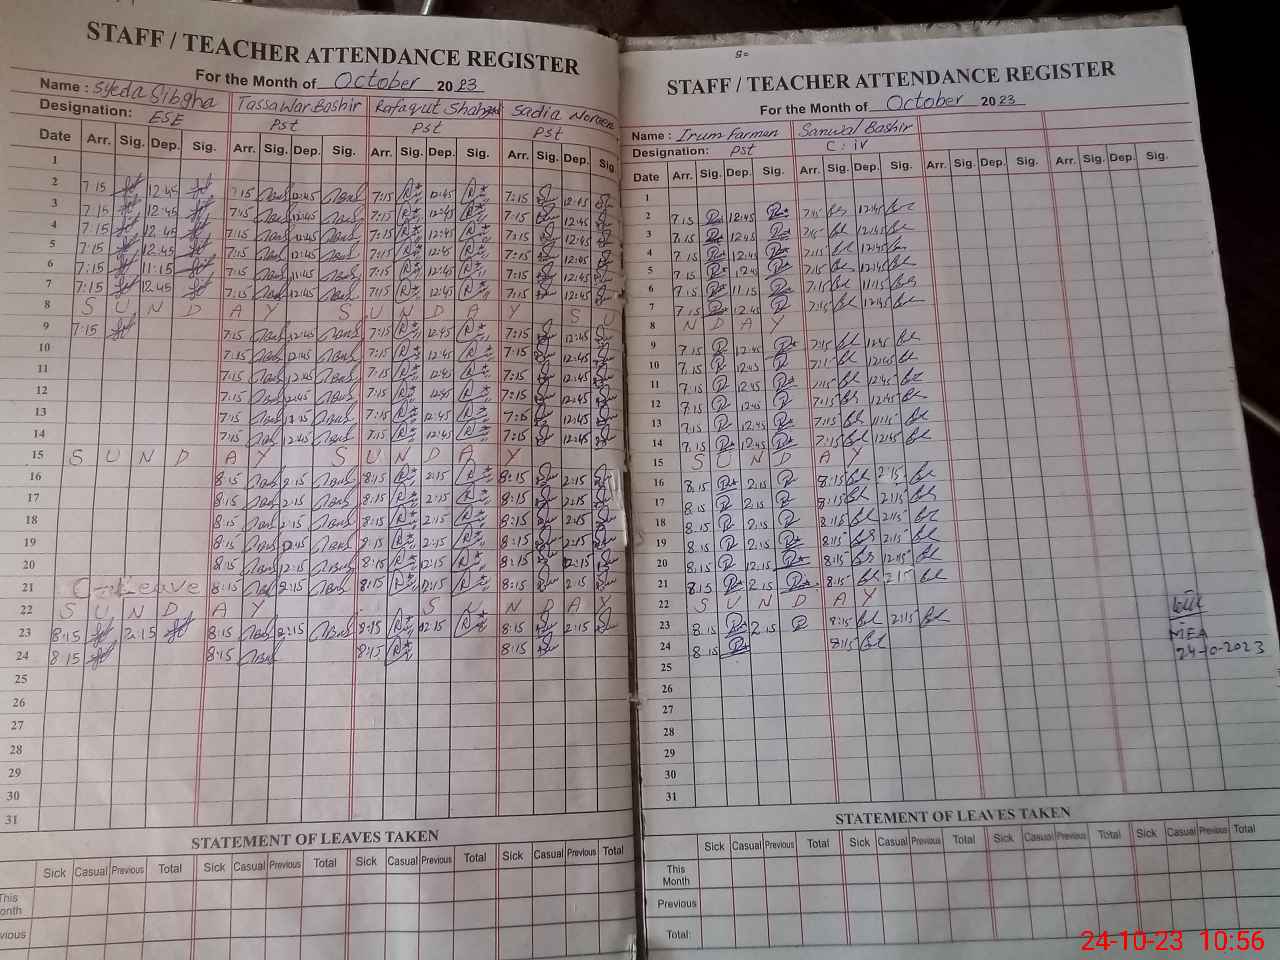 STAFF / TEACHER ATTENDANCE REGISTER
For the Month of October 2023
Name : Syeda Sibgha Tassawar Bashir Rafaqut Shahzad Sadia Noreen
Designation: ESE Pst Pst Pst
Date Arr. Sig. Dep. Sig. Arr. Sig. Dep. Sig. Arr. Sig. Dep. Sig. Arr. Sig. Dep. Sig.
1
2 7:15 12:45 7:15 12:45 7:15 12:45 7:15 12:45
3 7:15 12:45 7:15 12:45 7:15 12:45 7:15 12:45
4 7:15 12:45 7:15 12:45 7:15 12:45 7:15 12:45
5 7:15 12:45 7:15 12:45 7:15 12:45 7:15 12:45
6 7:15 11:15 7:15 7:15 12:45 7:15 12:45
7 7:15 12:45 7:15 12:45 7:15 12:45 7:15 12:45
8 S U N D A Y S U N D A Y S U
9 7:15 7:15 12:45 7:15 12:45 7:15 12:45
10 7:15 12:45 7:15 12:45 7:15 12:45
11 7:15 12:45 7:15 12:45 7:15 12:45
12 7:15 12:45 7:15 12:45 7:15 12:45
13 7:15 7:15 12:45 7:15 12:45
14 7:15 12:45 7:15 12:45 7:15 12:45
15 S U N D A Y S U N D A Y
16 8:15 2:15 8:15 2:15 8:15 2:15
17 8:15 2:15 8:15 2:15 8:15 2:15
18 8:15 2:15 8:15 2:15 8:15 2:15
19 8:15 8:15 2:15 8:15 2:15
20 8:15 12:15 8:15 12:15 8:15 12:15
21 C-Leave 8:15 2:15 8:15 8:15 2:15
22 S U N D A Y S U N D A Y
23 8:15 2:15 8:15 2:15 8:15 8:15 2:15
24 8:15 8:15 8:15 8:15
25
26
27
28
29
30
31
STATEMENT OF LEAVES TAKEN
Sick Casual Previous Total Sick Casual Previous Total Sick Casual Previous Total Sick Casual Previous Total
This
onth
vious
STAFF / TEACHER ATTENDANCE REGISTER
For the Month of October 2023
Name : Irum Farman Sanwal Bashir
Designation: Pst C : iv
Date Arr. Sig. Dep. Sig. Arr. Sig. Dep. Sig. Arr. Sig. Dep. Sig. Arr. Sig. Dep. Sig.
1
2 7:15 12:45 7:15 12:45
3 7:15 12:45 7:15 12:45
4 7:15 12:45 7:15 12:45
5 7:15 12:45 7:15 12:45
6 7:15 11:15 7:15 11:15
7 7:15 12:45 7:15 12:45
8 N D A Y
9 7:15 12:45 7:15 12:45
10 7:15 12:45 7:15 12:45
11 7:15 12:45 7:15 12:45
12 7:15 12:45 7:15 12:45
13 7:15 12:45 7:15 11:15
14 7:15 12:45 7:15 12:45
15 S U N D A Y
16 8:15 2:15 8:15 2:15
17 8:15 2:15 8:15 2:15
18 8:15 2:15 8:15 2:15
19 8:15 2:15 8:15 2:15
20 8:15 12:15 8:15 12:15
21 8:15 2:15 8:15 2:15
22 S U N D A Y
23 8:15 2:15 8:15 2:15
24 8:15 8:15
25
26
27
28
29
30
31
MEA
24-10-2023
STATEMENT OF LEAVES TAKEN
Sick Casual Previous Total Sick Casual Previous Total Sick Casual Previous Total Sick Casual Previous Total
This
Month
Previous
Total:
24-10-23 10:56